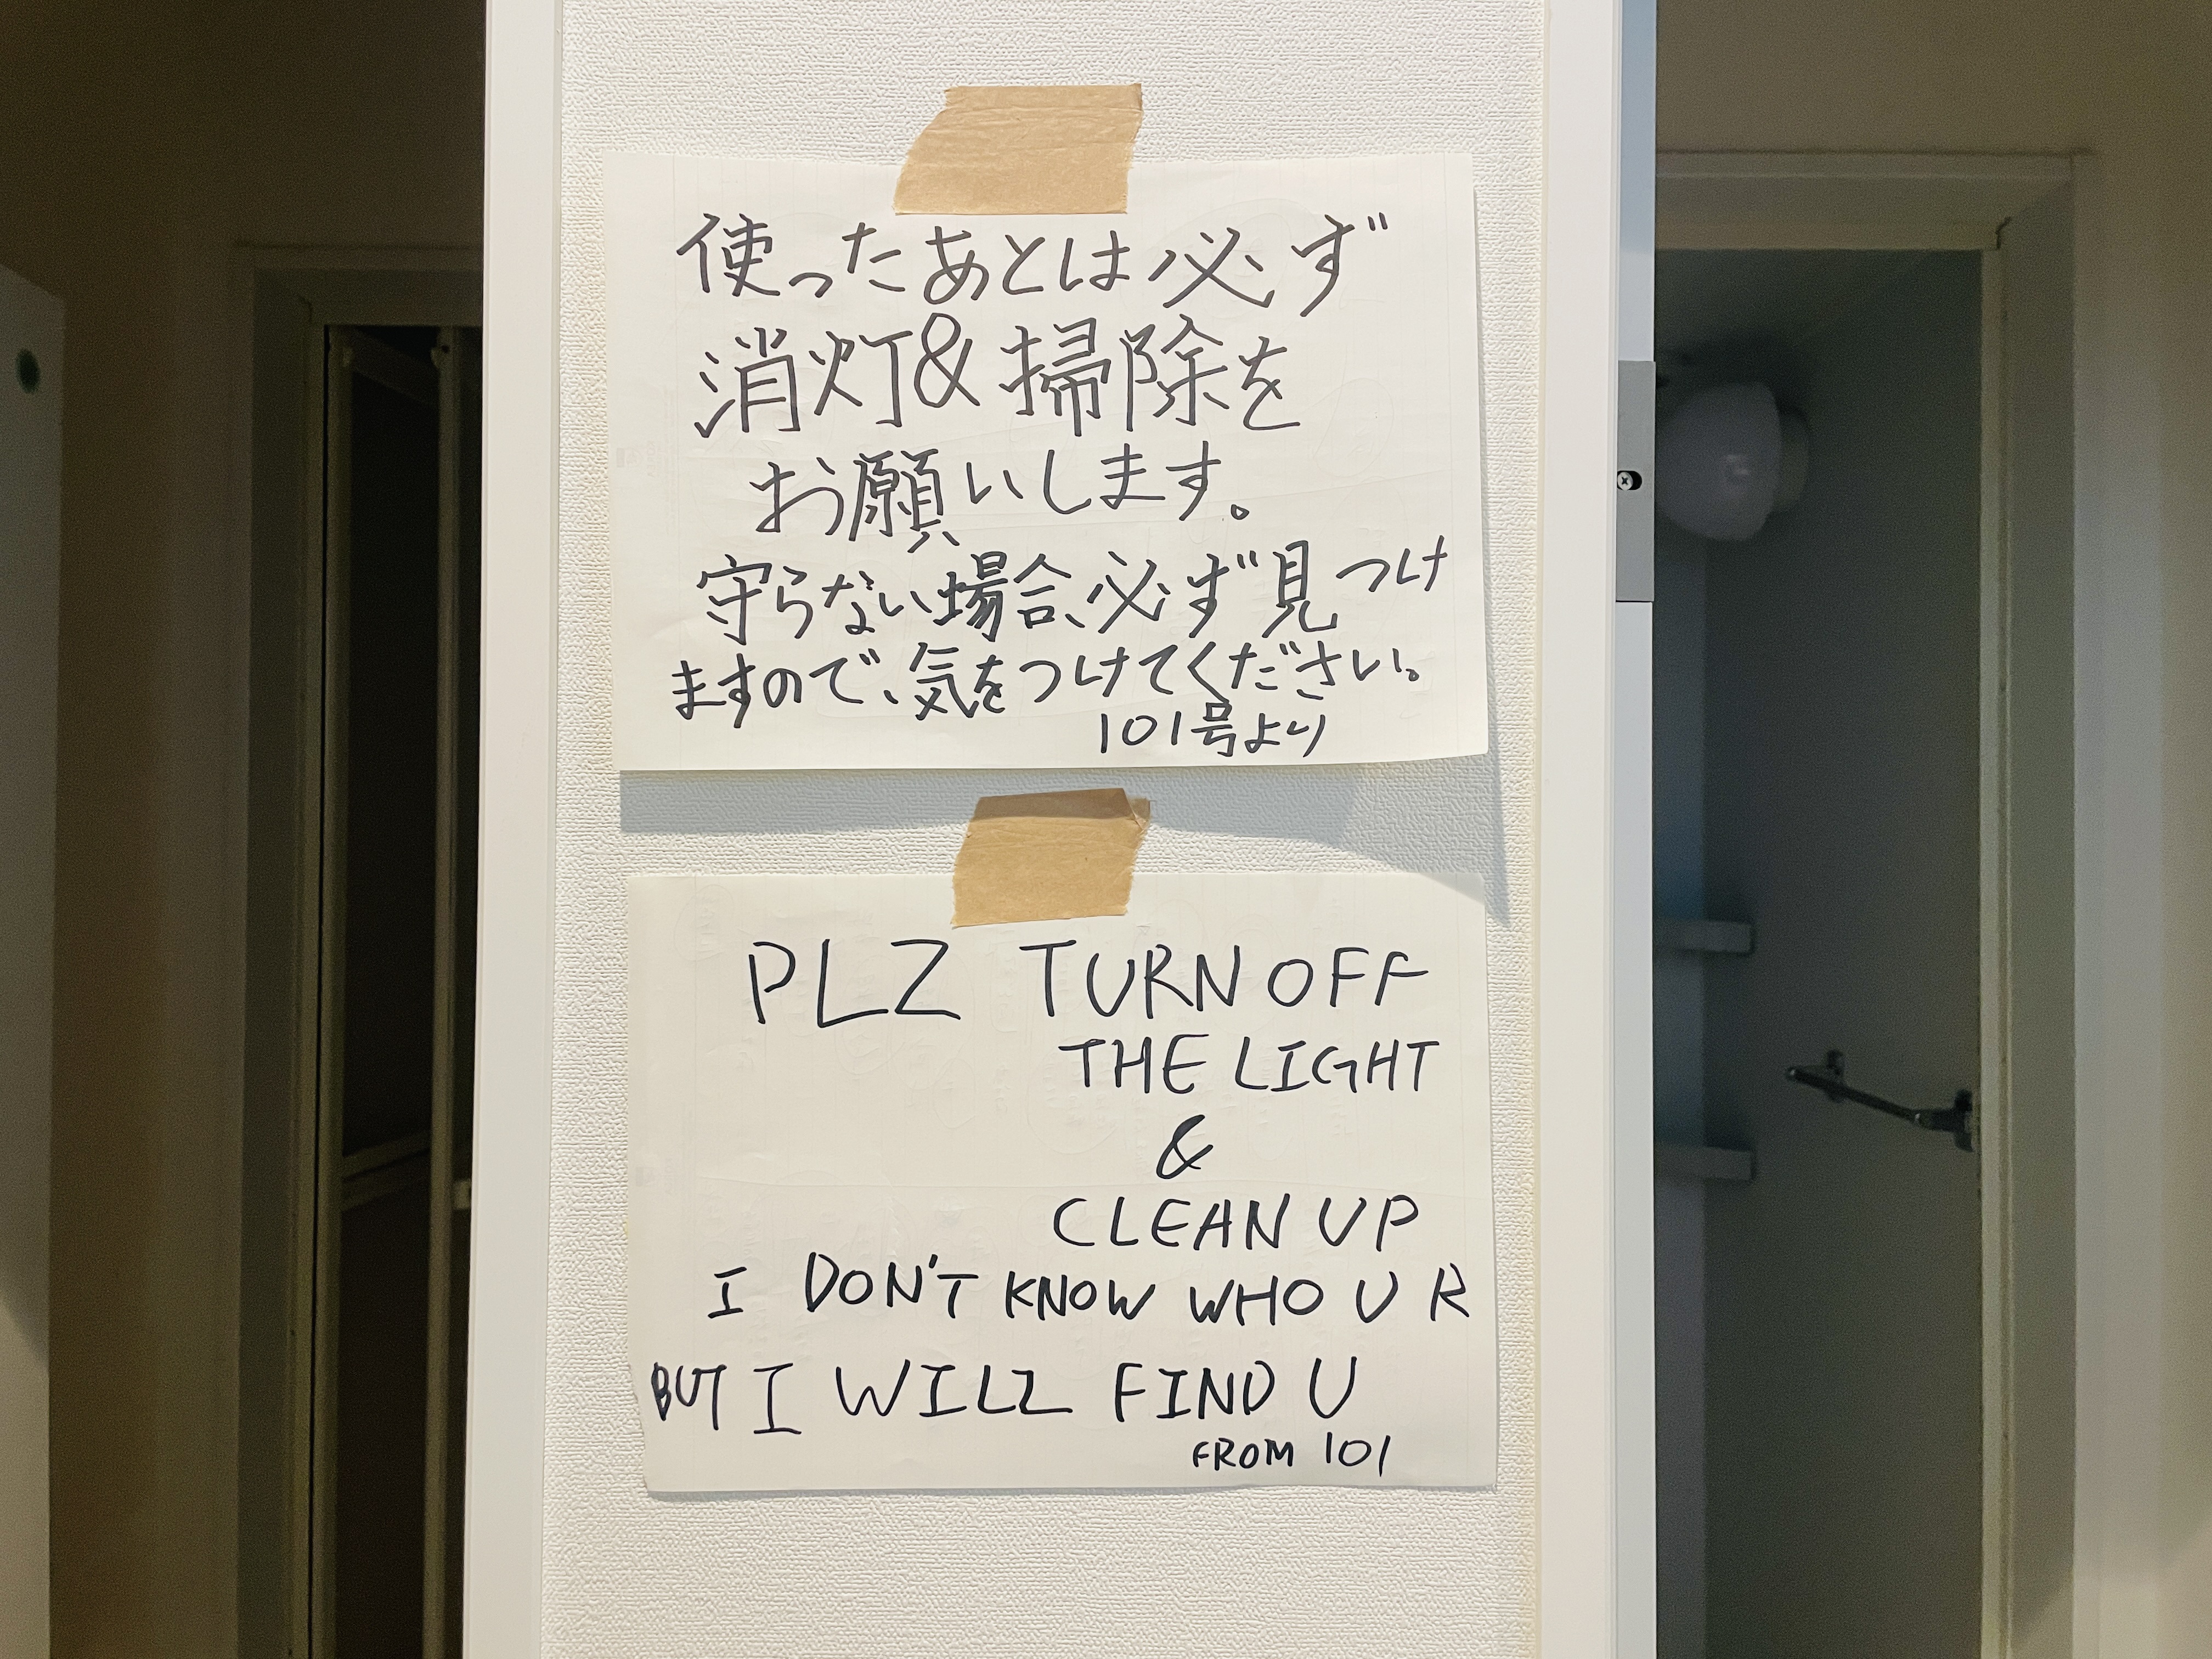 使ったあとは必ず
消灯&掃除を
お願いします。
守らない場合、必ず見つけ
ますので、気をつけてください。
101号より
PLZ TURN OFF
THE LIGHT
&
CLEAN UP
I DON'T KNOW WHO U R
BUT I WILL FIND U
FROM 101